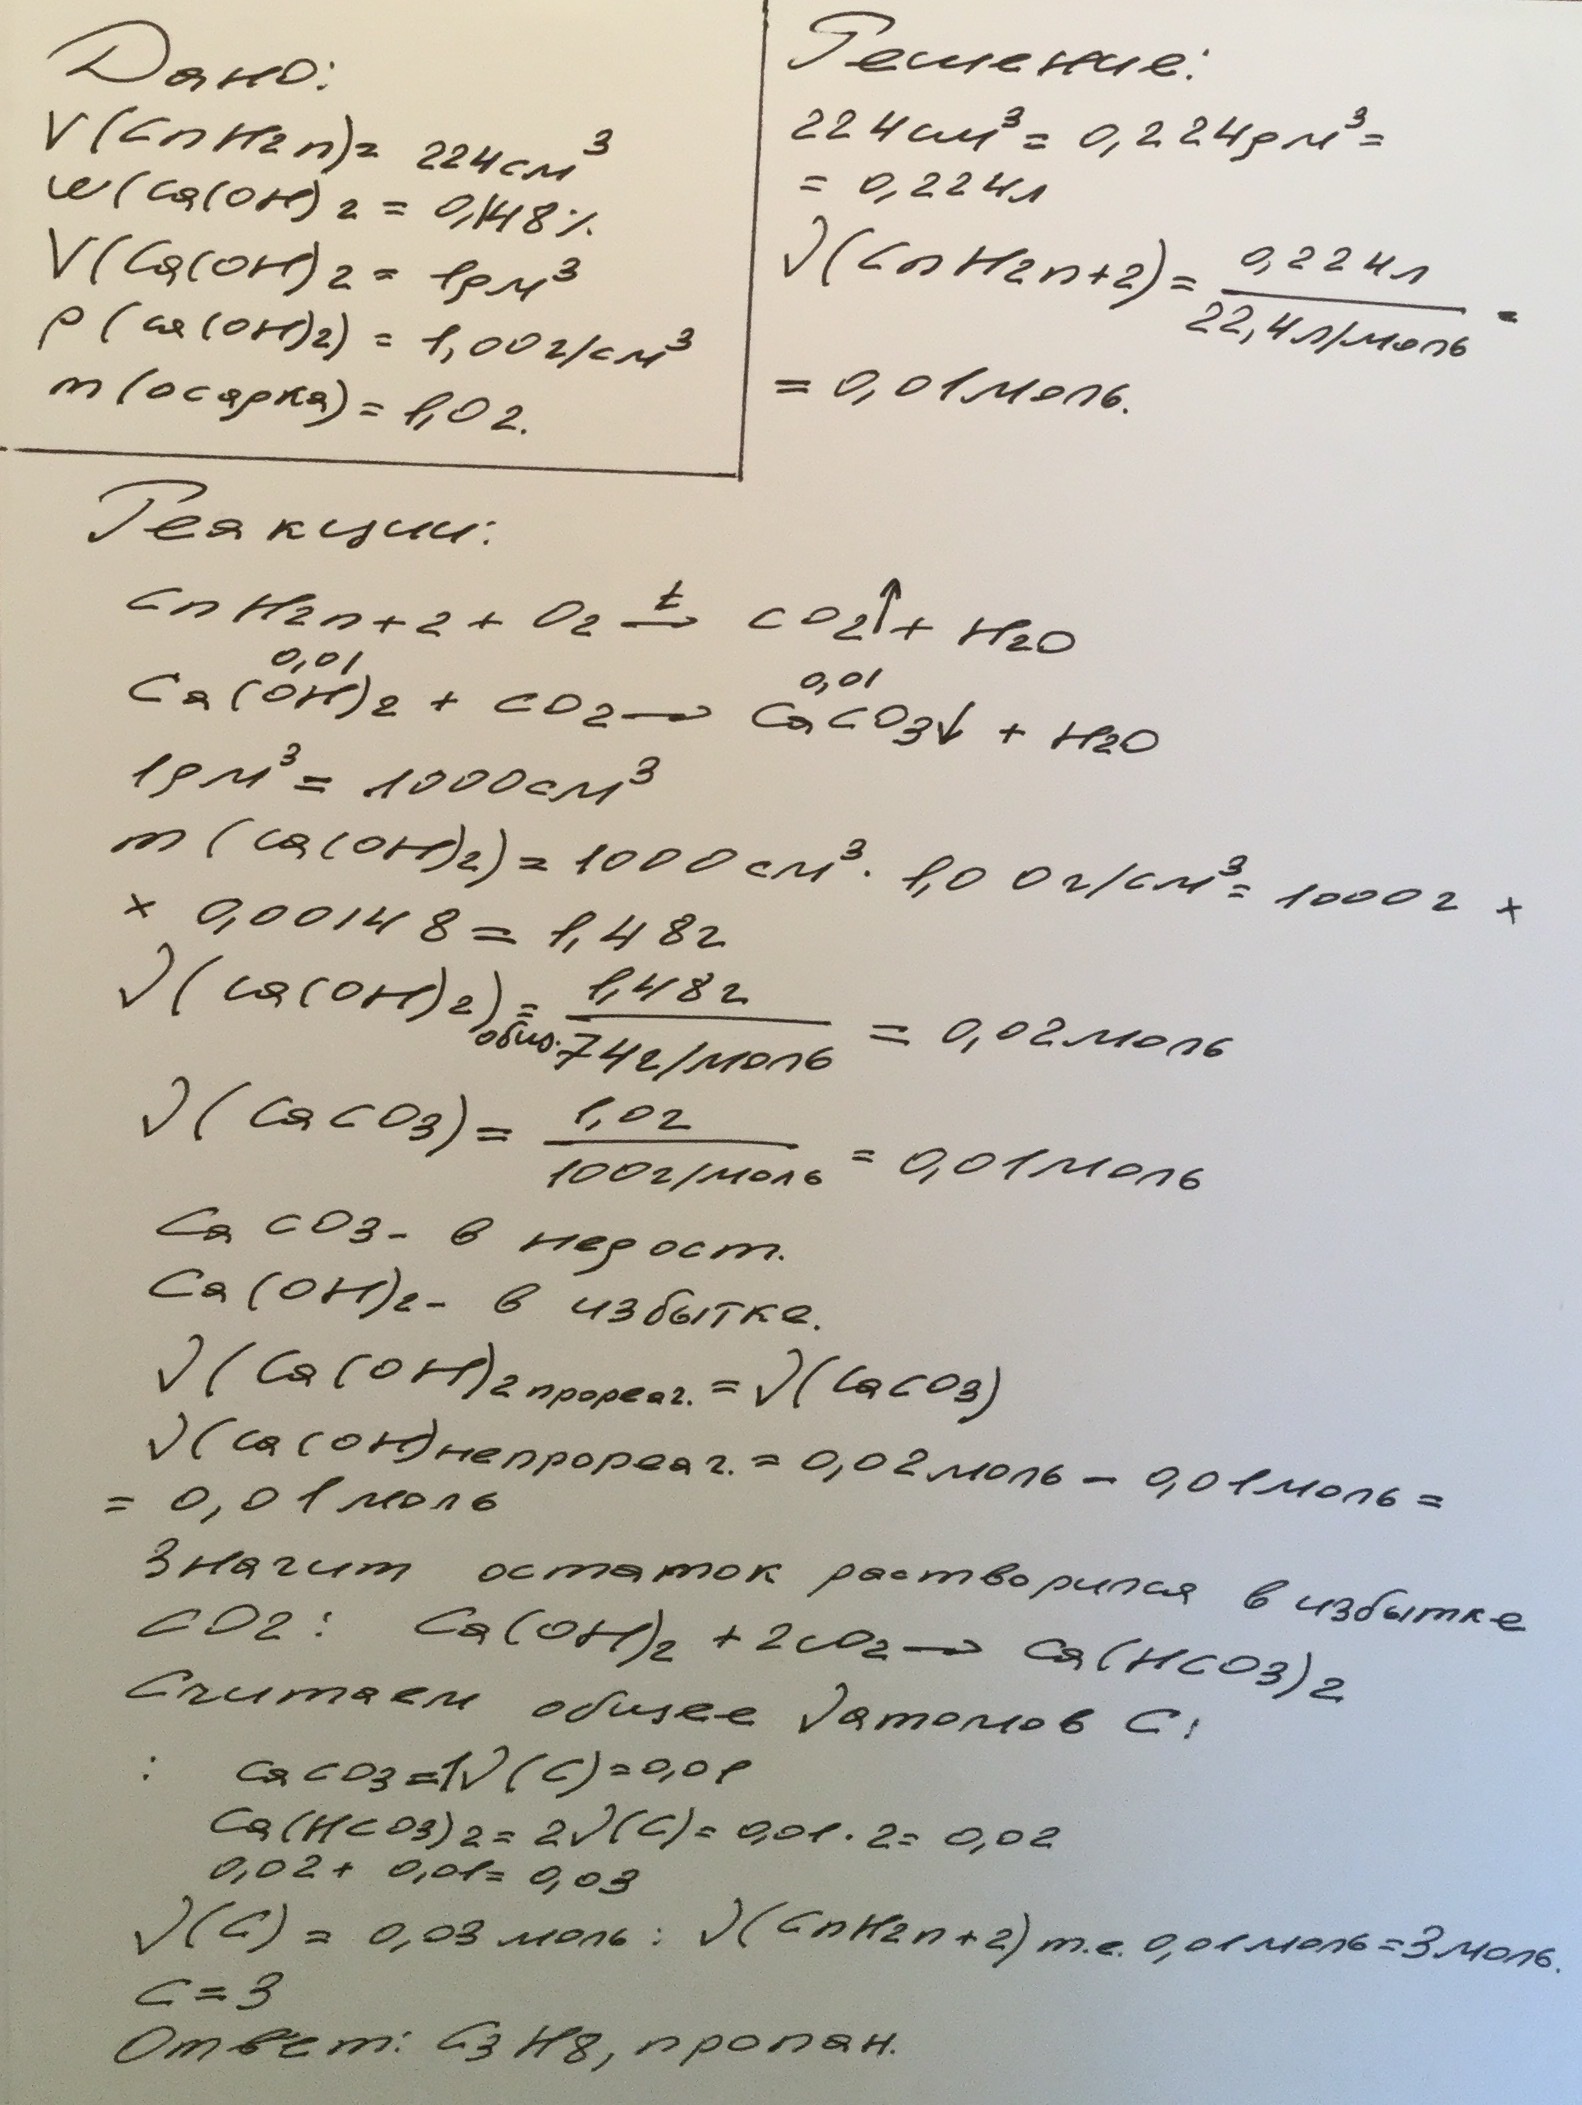 Дано:
V(CnH2n)= 224см³
w(Ca(OH)2 = 0,148%
V(Ca(OH)2 = 1дм³
ρ(Ca(OH)2) = 1,00г/см³
m(осадка) = 1,0г.
Решение:
224см³ = 0,224дм³=
= 0,224л
ν(CnH2n+2) = 0,224л / 22,4л/моль =
= 0,01моль.
Реакции:
CnH2n+2 + O2 t→ CO2↑ + H2O
0,01 0,01
Ca(OH)2 + CO2 → CaCO3↓ + H2O
1дм³ = 1000см³
m(Ca(OH)2) = 1000см³ · 1,00г/см³ = 1000г ×
× 0,00148 = 1,48г
ν(Ca(OH)2)общ. = 1,48г / 74г/моль = 0,02моль
ν(CaCO3) = 1,0г / 100г/моль = 0,01моль
CaCO3 - в недост.
Ca(OH)2 - в избытке.
ν(Ca(OH)2прореаг. = ν(CaCO3)
ν(Ca(OH)непрореаг. = 0,02моль - 0,01моль =
= 0,01моль
Значит остаток растворился в избытке
CO2: Ca(OH)2 + 2CO2 → Ca(HCO3)2
Считаем общее ν атомов C:
: CaCO3 = 1ν(C) = 0,01
Ca(HCO3)2 = 2ν(C) = 0,01·2 = 0,02
0,02 + 0,01 = 0,03
ν(C) = 0,03 моль : ν(CnH2n+2) т.е. 0,01моль = 3моль.
C = 3
Ответ: C3H8, пропан.